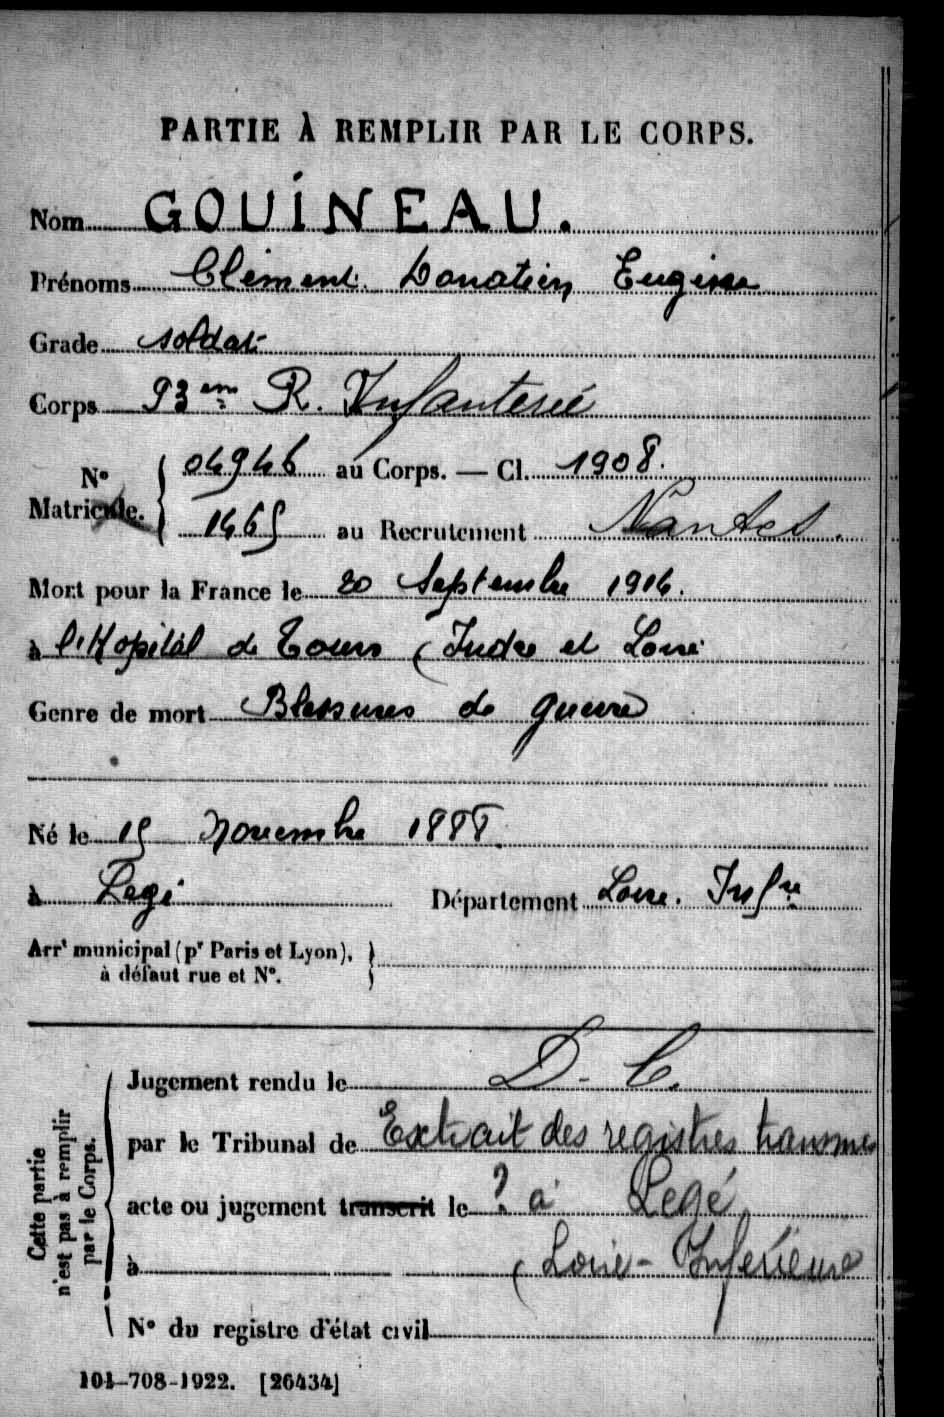 PARTIE À REMPLIR PAR LE CORPS.
Nom GOUINEAU.
Prénoms Clément Donatien Eugène
Grade soldat
Corps 93em R. Infanterie
No Matricule. { 04946 au Corps. — Cl. 1908.
1465 au Recrutement Nantes.
Mort pour la France le 20 Septembre 1914.
à l'Hopital de Tours (Indre et Loire
Genre de mort Blessures de guerre
Né le 15 Novembre 1888.
à Legé Département Loire. Infre
Arrt municipal (pr Paris et Lyon),
à défaut rue et No.
Cette partie n'est pas à remplir par le Corps.
Jugement rendu le D. C.
par le Tribunal de Extrait des registres transmis
acte ou jugement transcrit le ? à Legé
à (Loire-Inférieure
No du registre d'état civil
101-708-1922. [26434]